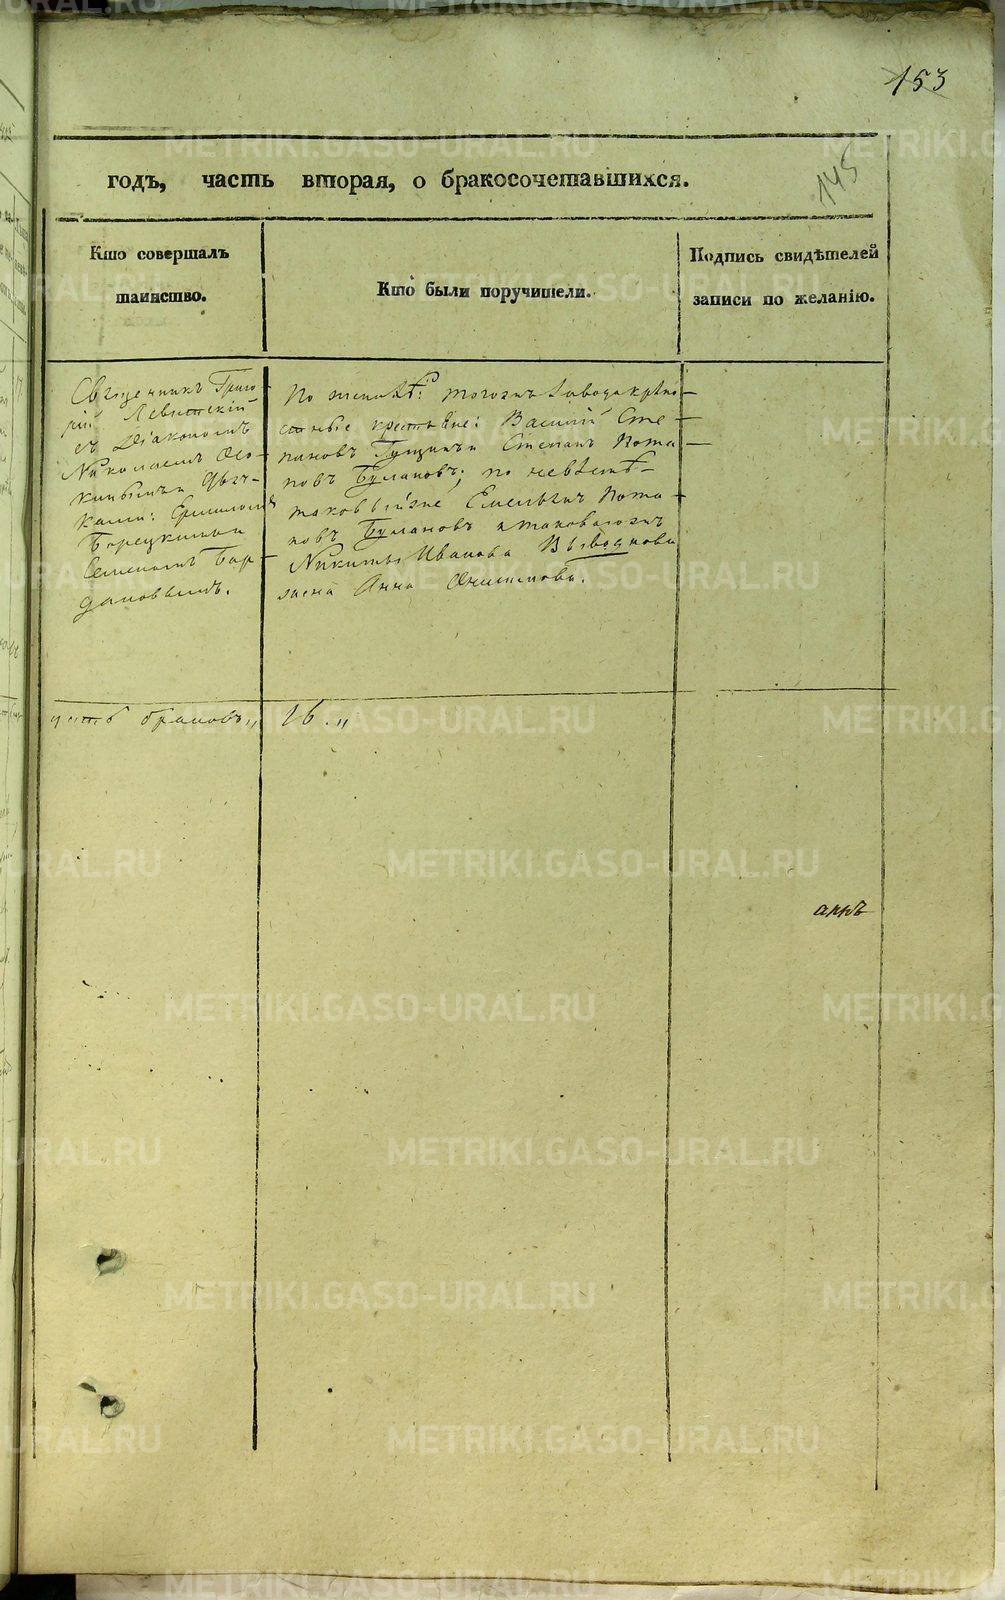 153
145
годъ, часть вторая, о бракосочетавшихся.
Кто совершалъ
таинство.
Кто были поручители.
Подпись свидѣтелей
записи по желанію.
Священникъ Григо
рій Левитскій
съ Діакономъ
Николаемъ
Дьяч-
ками:
Борецкимъ и
Семеномъ Бог
дановымъ.
По женихѣ: тогожъ завода крѣпо
стные крестьяне: Василій Сте
пановъ Гущинъ и Степанъ Пота
повъ Булановъ; по невѣстѣ
таковыеже Емельянъ Пота
повъ Булановъ и таковагожъ
Никиты Иванова
жена Анна Онисимова.
браковъ „ 26. „
METRIKI.GASO-URAL.RU